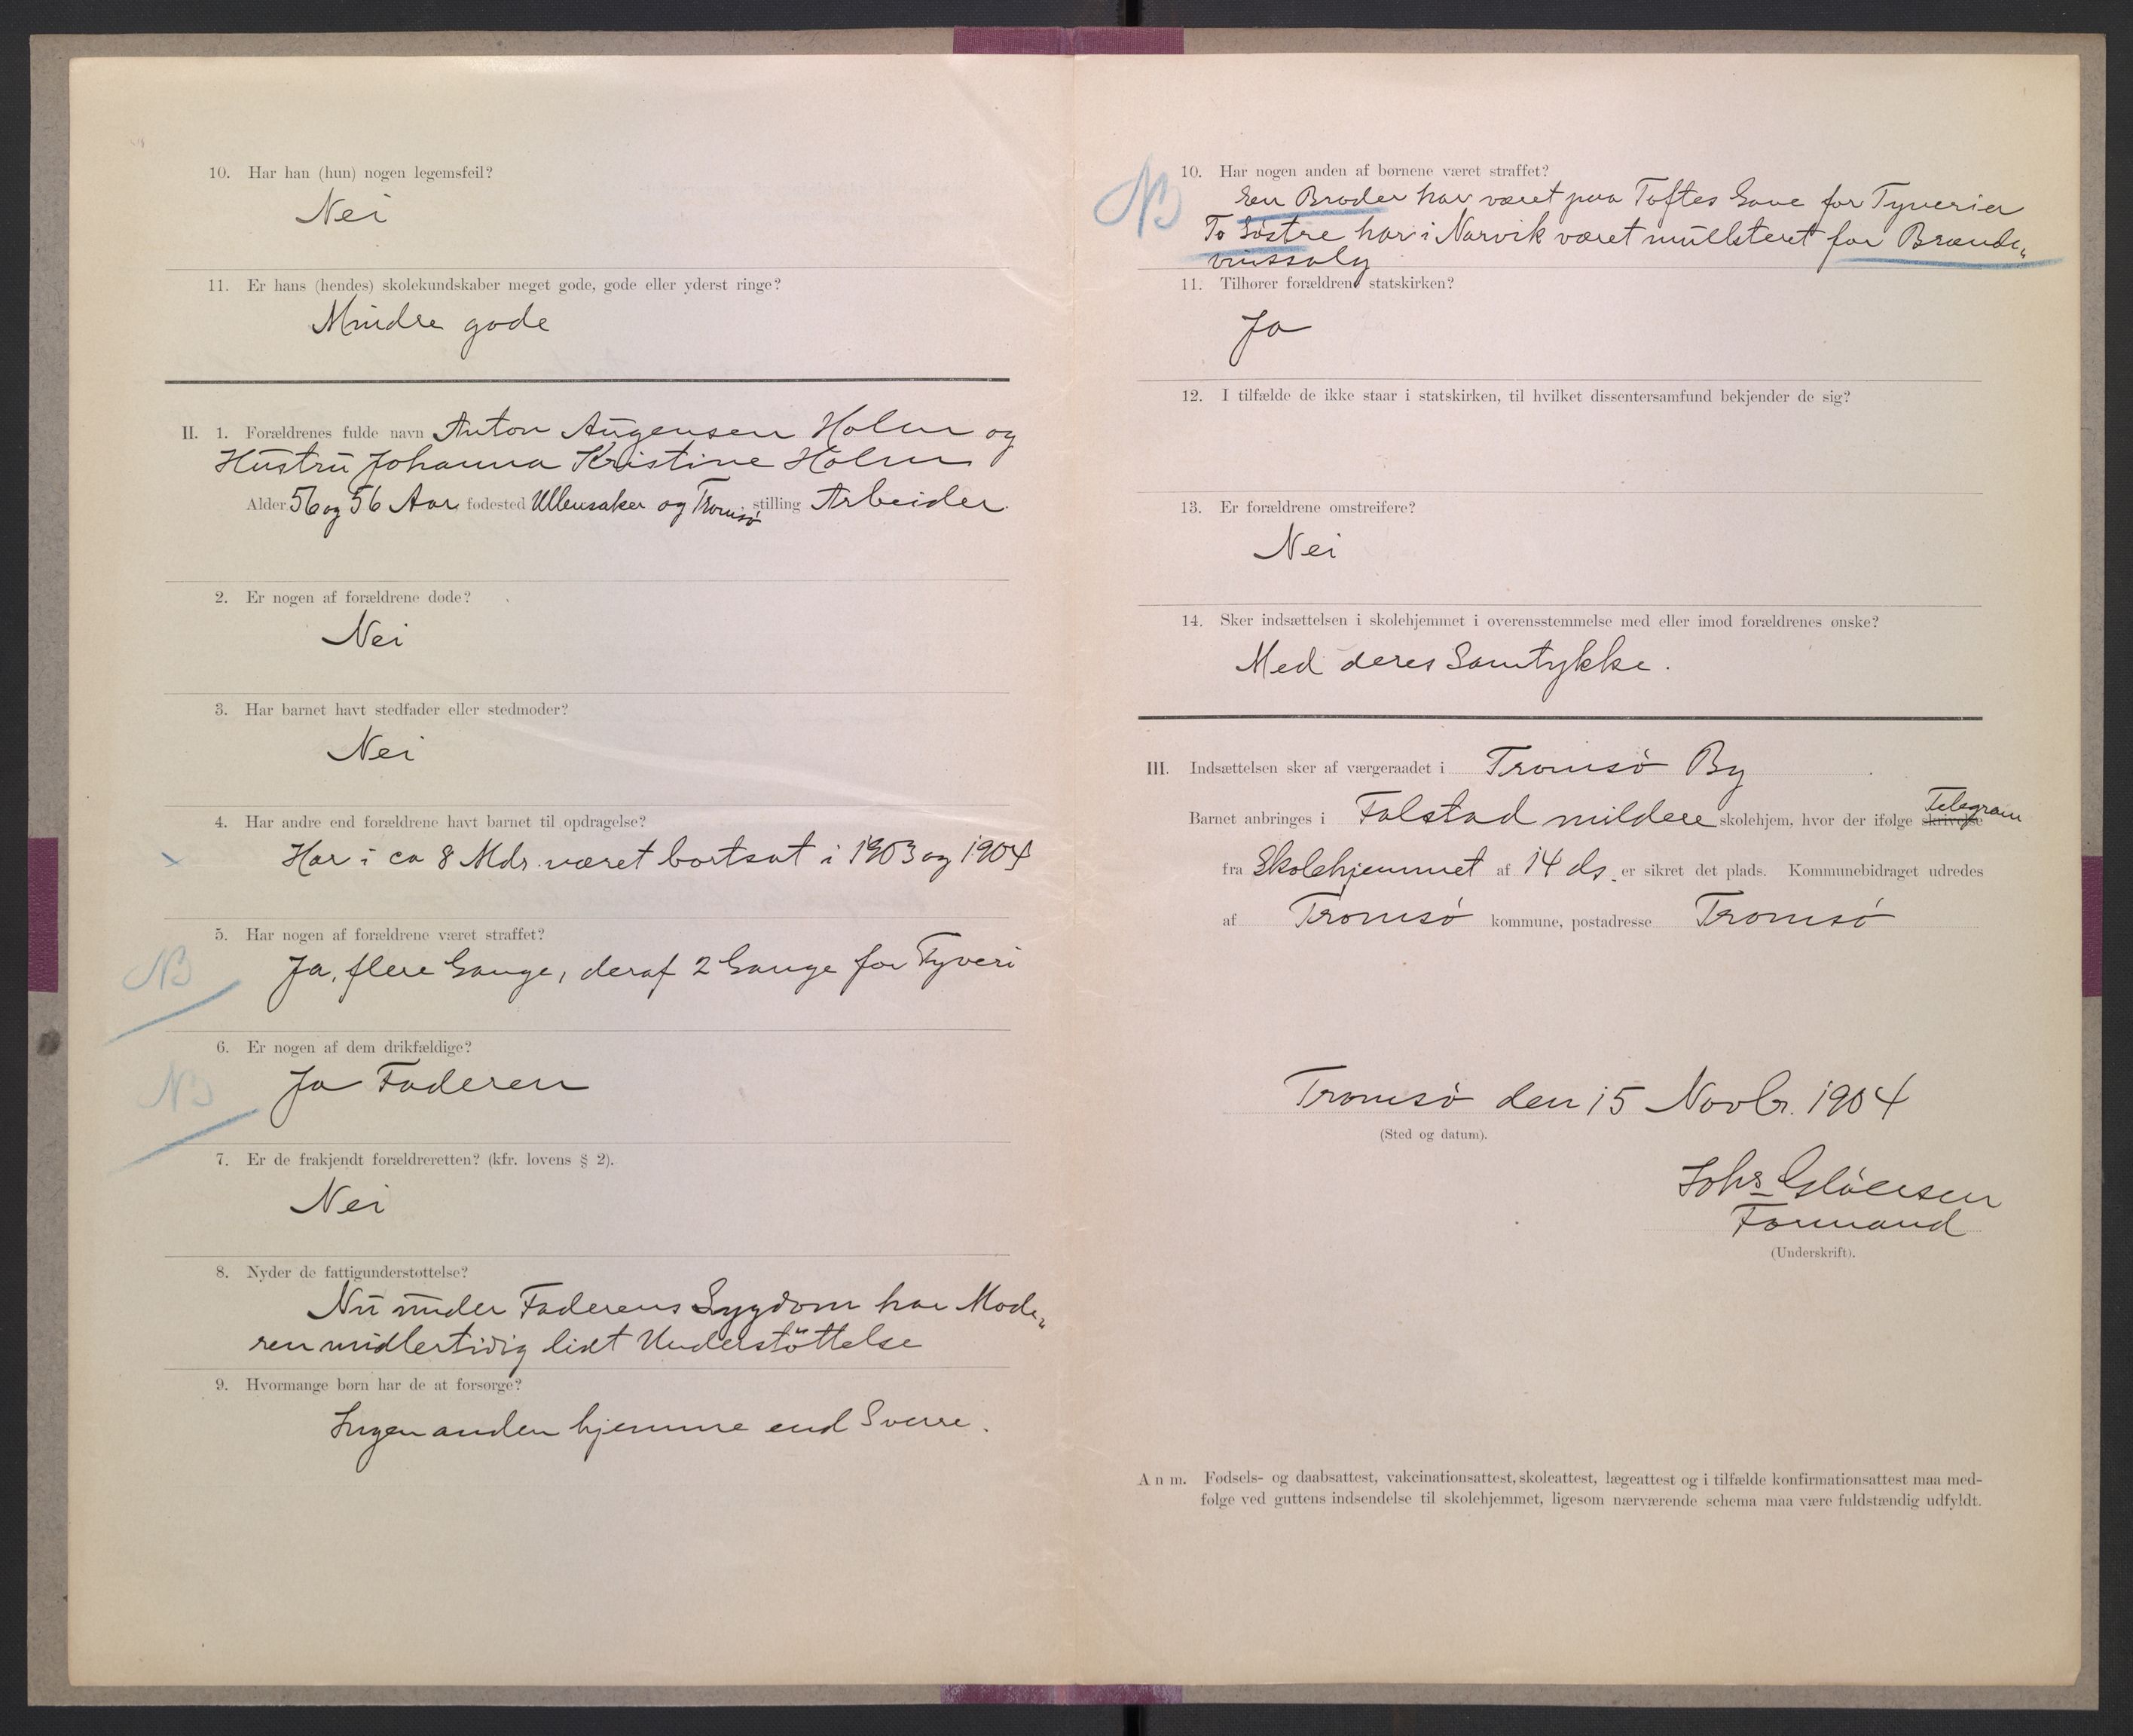 10. Har han (hun) nogen legemsfeil?
Nei
11. Er hans (hendes) skolekundskaber meget gode, gode eller yderst ringe?
Mindre gode
II. 1. Forældrenes fulde navn Anton Augensen Holm og
Hustru Johanna Kristine Holm
Alder 56 og 56 Aar fødested Ullensaker og Tromsø stilling Arbeider
2. Er nogen af forældrene døde?
Nei
3. Har barnet havt stedfader eller stedmoder?
Nei
4. Har andre end forældrene havt barnet til opdragelse?
x Har i ca 8 Mdr. været bortsat i 1903 og 1904
5. Har nogen af forældrene været straffet?
NB Ja, flere Gange, deraf 2 Gange for Tyveri
6. Er nogen af dem drikfældige?
NB Ja Faderen
7. Er de frakjendt forældreretten? (kfr. lovens § 2).
Nei
8. Nyder de fattigunderstøttelse?
Nu under Faderens Sygdom har Mode„
ren midlertidig lidt Understøttelse
9. Hvormange børn har de at forsørge?
Ingen anden hjemme end Sverre.
NB 10. Har nogen anden af børnene været straffet?
En Broder har været paa Toftes Gave for Tyverier
To Søstre har i Narvik været mulkteret for Brænde„
vinssalg
11. Tilhører forældrene statskirken?
Ja
12. I tilfælde de ikke staar i statskirken, til hvilket dissentersamfund bekjender de sig?
13. Er forældrene omstreifere?
Nei
14. Sker indsættelsen i skolehjemmet i overensstemmelse med eller imod forældrenes ønske?
Med deres Samtykke.
III. Indsættelsen sker af værgeraadet i Tromsø By
Telegram
Barnet anbringes i Falstad mildere skolehjem, hvor der ifølge skrivelse
fra Skolehjemmet af 14 ds. er sikret det plads. Kommunebidraget udredes
af Tromsø kommune, postadresse Tromsø
Tromsø den 15 Novbr. 1904
(Sted og datum).
Johs Gløersen
Formand
(Underskrift).
Anm. Fødsels- og daabsattest, vakcinationsattest, skoleattest, lægeattest og i tilfælde konfirmationsattest maa med-
følge ved guttens indsendelse til skolehjemmet, ligesom nærværende schema maa være fuldstændig udfyldt.